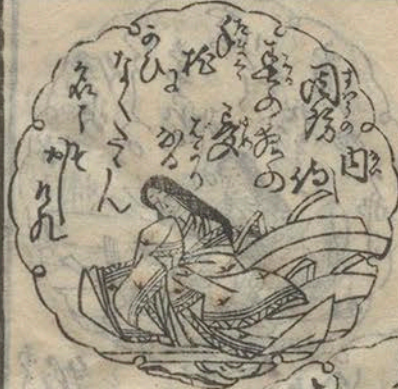 周防内侍
春の夜の
夢ばかり
なる
手
枕に
かひ
なくたゝん
名こそ
をしけれ